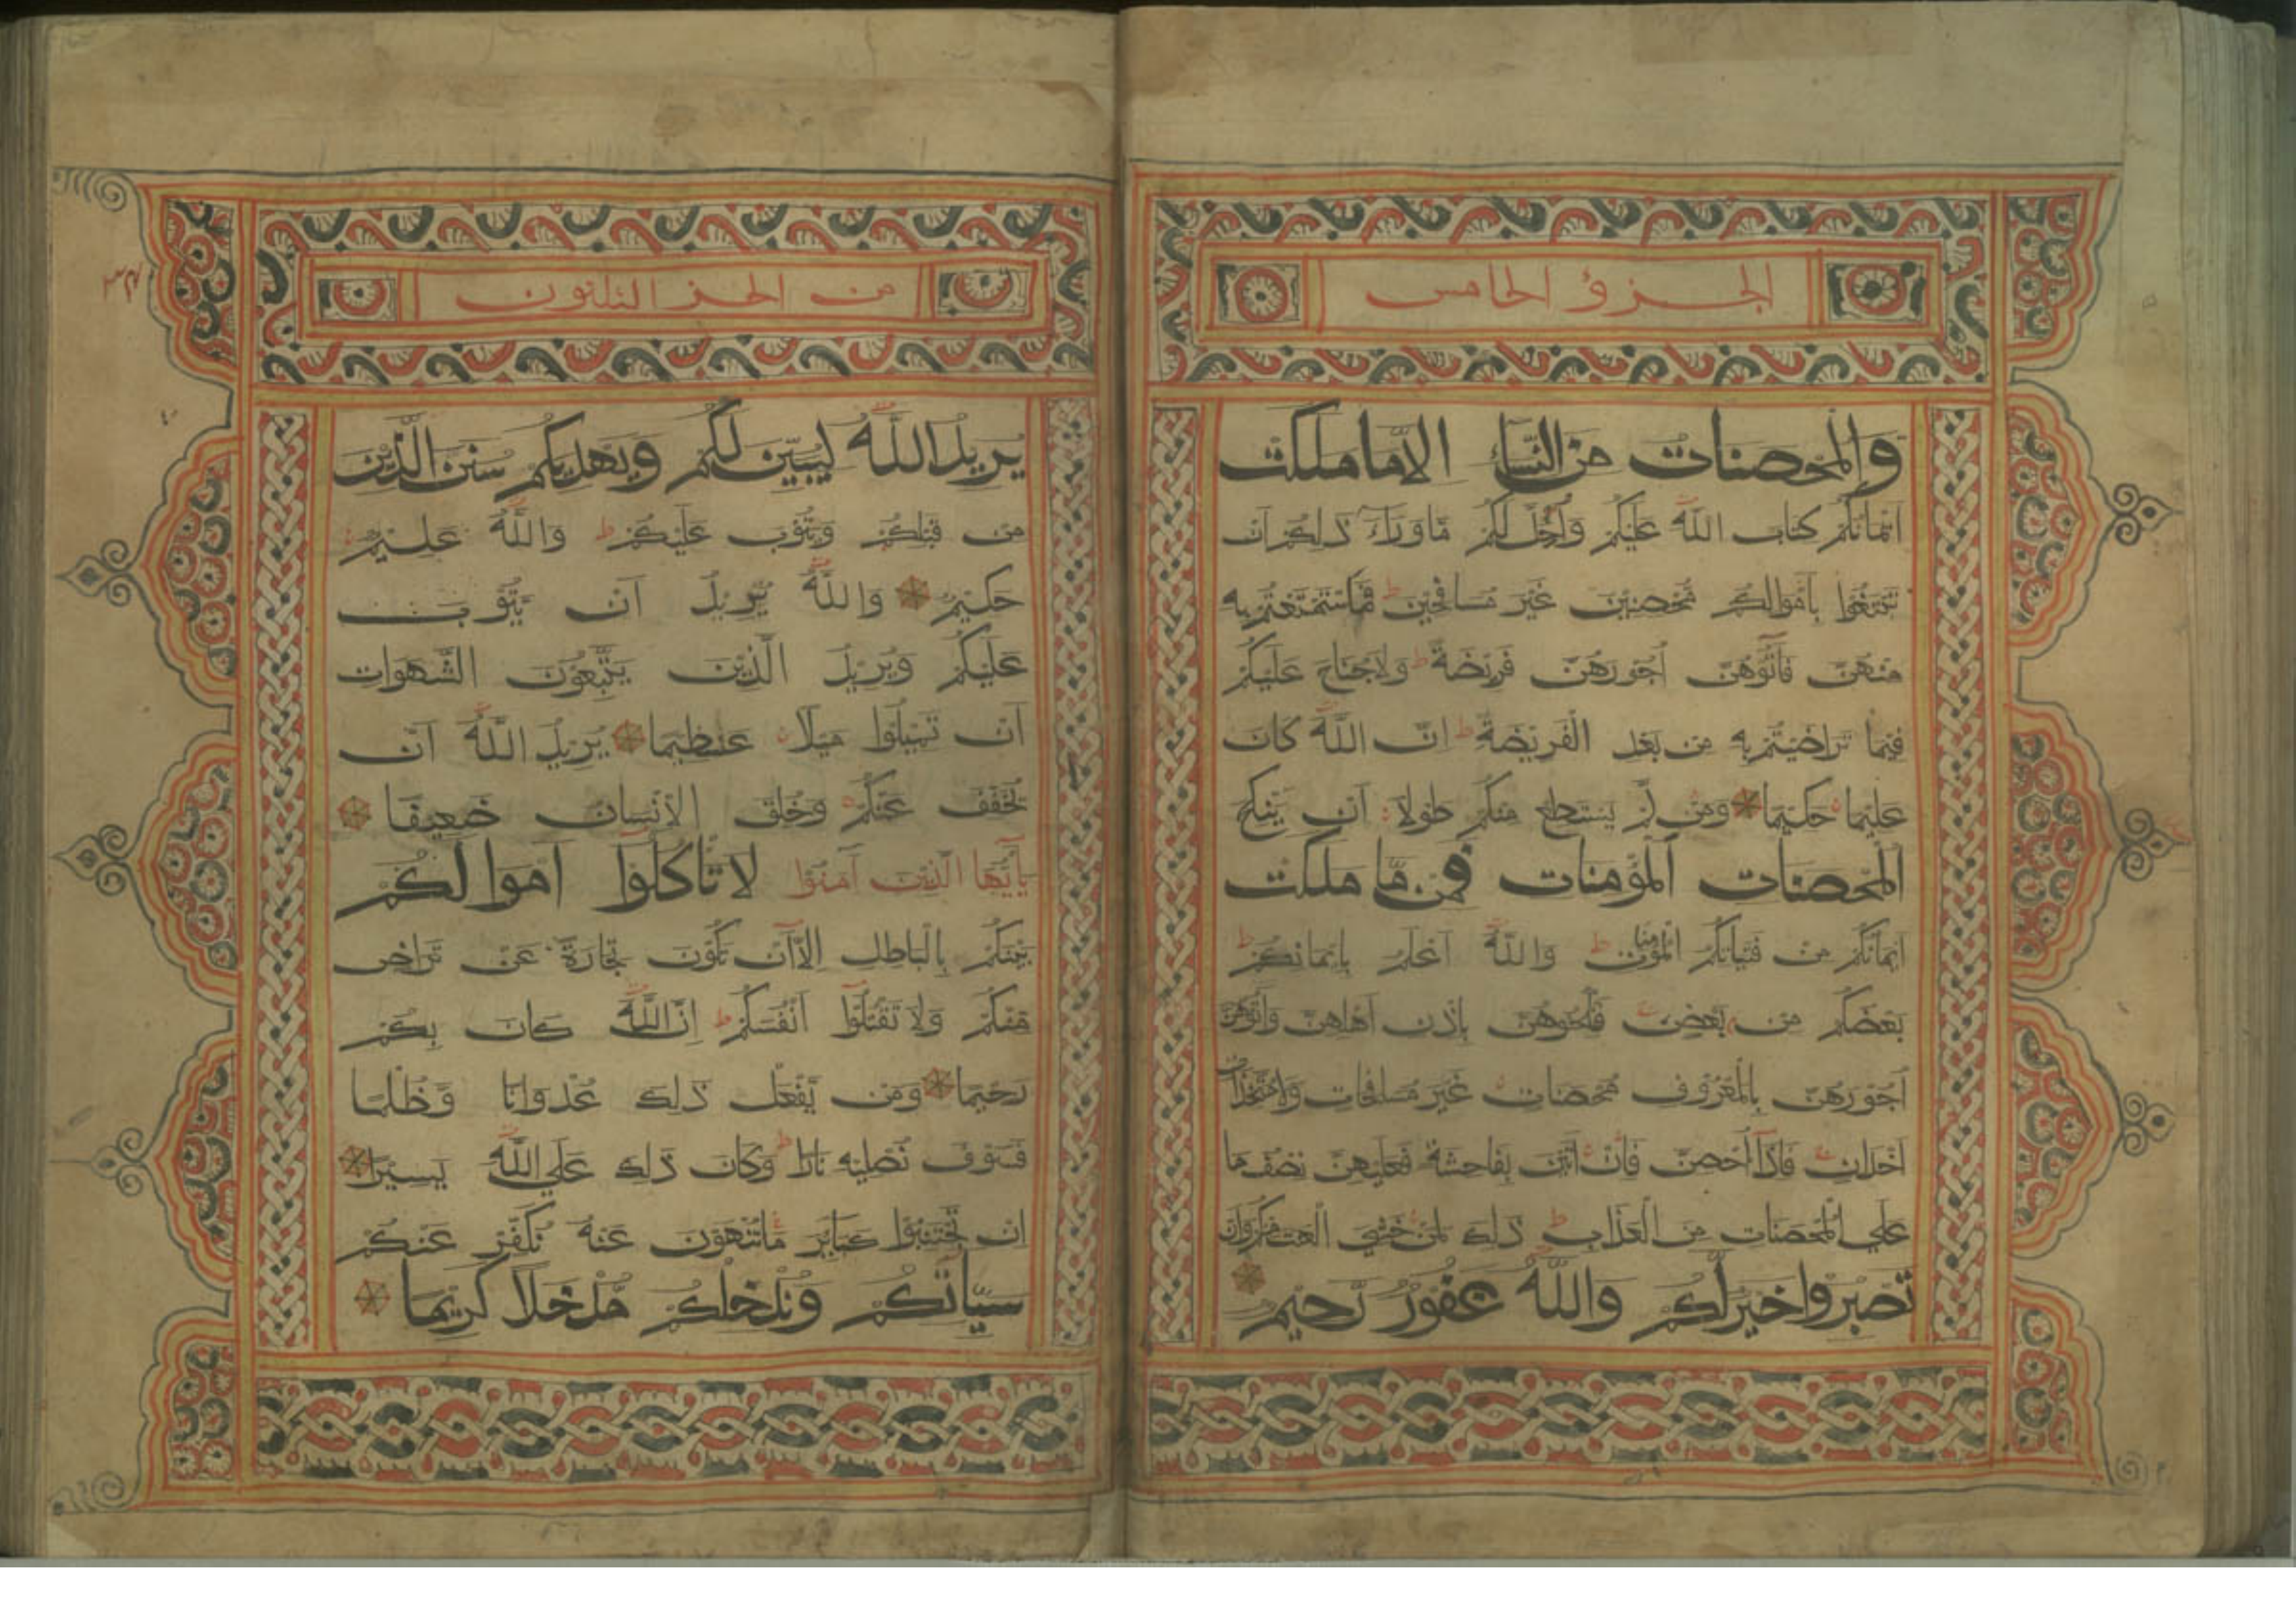 الجزؤ الخامس
والمحصنات من النساء الا ما ملكت
ايمانكم كتاب الله عليكم واحل لكم ما وراء ذلكم ان
تبتغوا باموالكم محصنين غير مسافحين ط فما استمتعتم به
منهن فاتوهن اجورهن فريضة ط ولا جناح عليكم
فيما تراضيتم به من بعد الفريضة ط ان الله كان
عليما حكيما ومن لم يستطع منكم طولا ان ينكح
المحصنات المؤمنات فمن ما ملكت
ايمانكم من فتياتكم المؤمنات ط والله اعلم بايمانكم ط
بعضكم من بعض فانكحوهن باذن اهلهن واتوهن
اجورهن بالمعروف محصنات غير مسافحات ولا متخذات
اخدان فاذا احصن فان اتين بفاحشة فعليهن نصف ما
علي المحصنات من العذاب ط ذلك لمن خشي العنت منكم وان
تصبروا خير لكم والله غفور رحيم
من الجز الثلثون
يريد الله ليبين لكم ويهديكم سنن الذين
من قبلكم ويتوب عليكم ط والله عليم
حكيم والله يريد ان يتوب
عليكم ويريد الذين يتبعون الشهوات
ان تميلوا ميلا عظيما يريد الله ان
يخفف عنكم وخلق الانسان ضعيفا
يايها الذين آمنوا لا تاكلوا اموالكم
بينكم بالباطل الا ان تكون تجارة عن تراض
منكم ولا تقتلوا انفسكم ط ان الله كان بكم
رحيما ومن يفعل ذلك عدوانا وظلما
فسوف نصليه نارا ط وكان ذلك علي الله يسيرا
ان تجتنبوا كبائر ما تنهون عنه نكفر عنكم
سيئاتكم وندخلكم مدخلا كريما